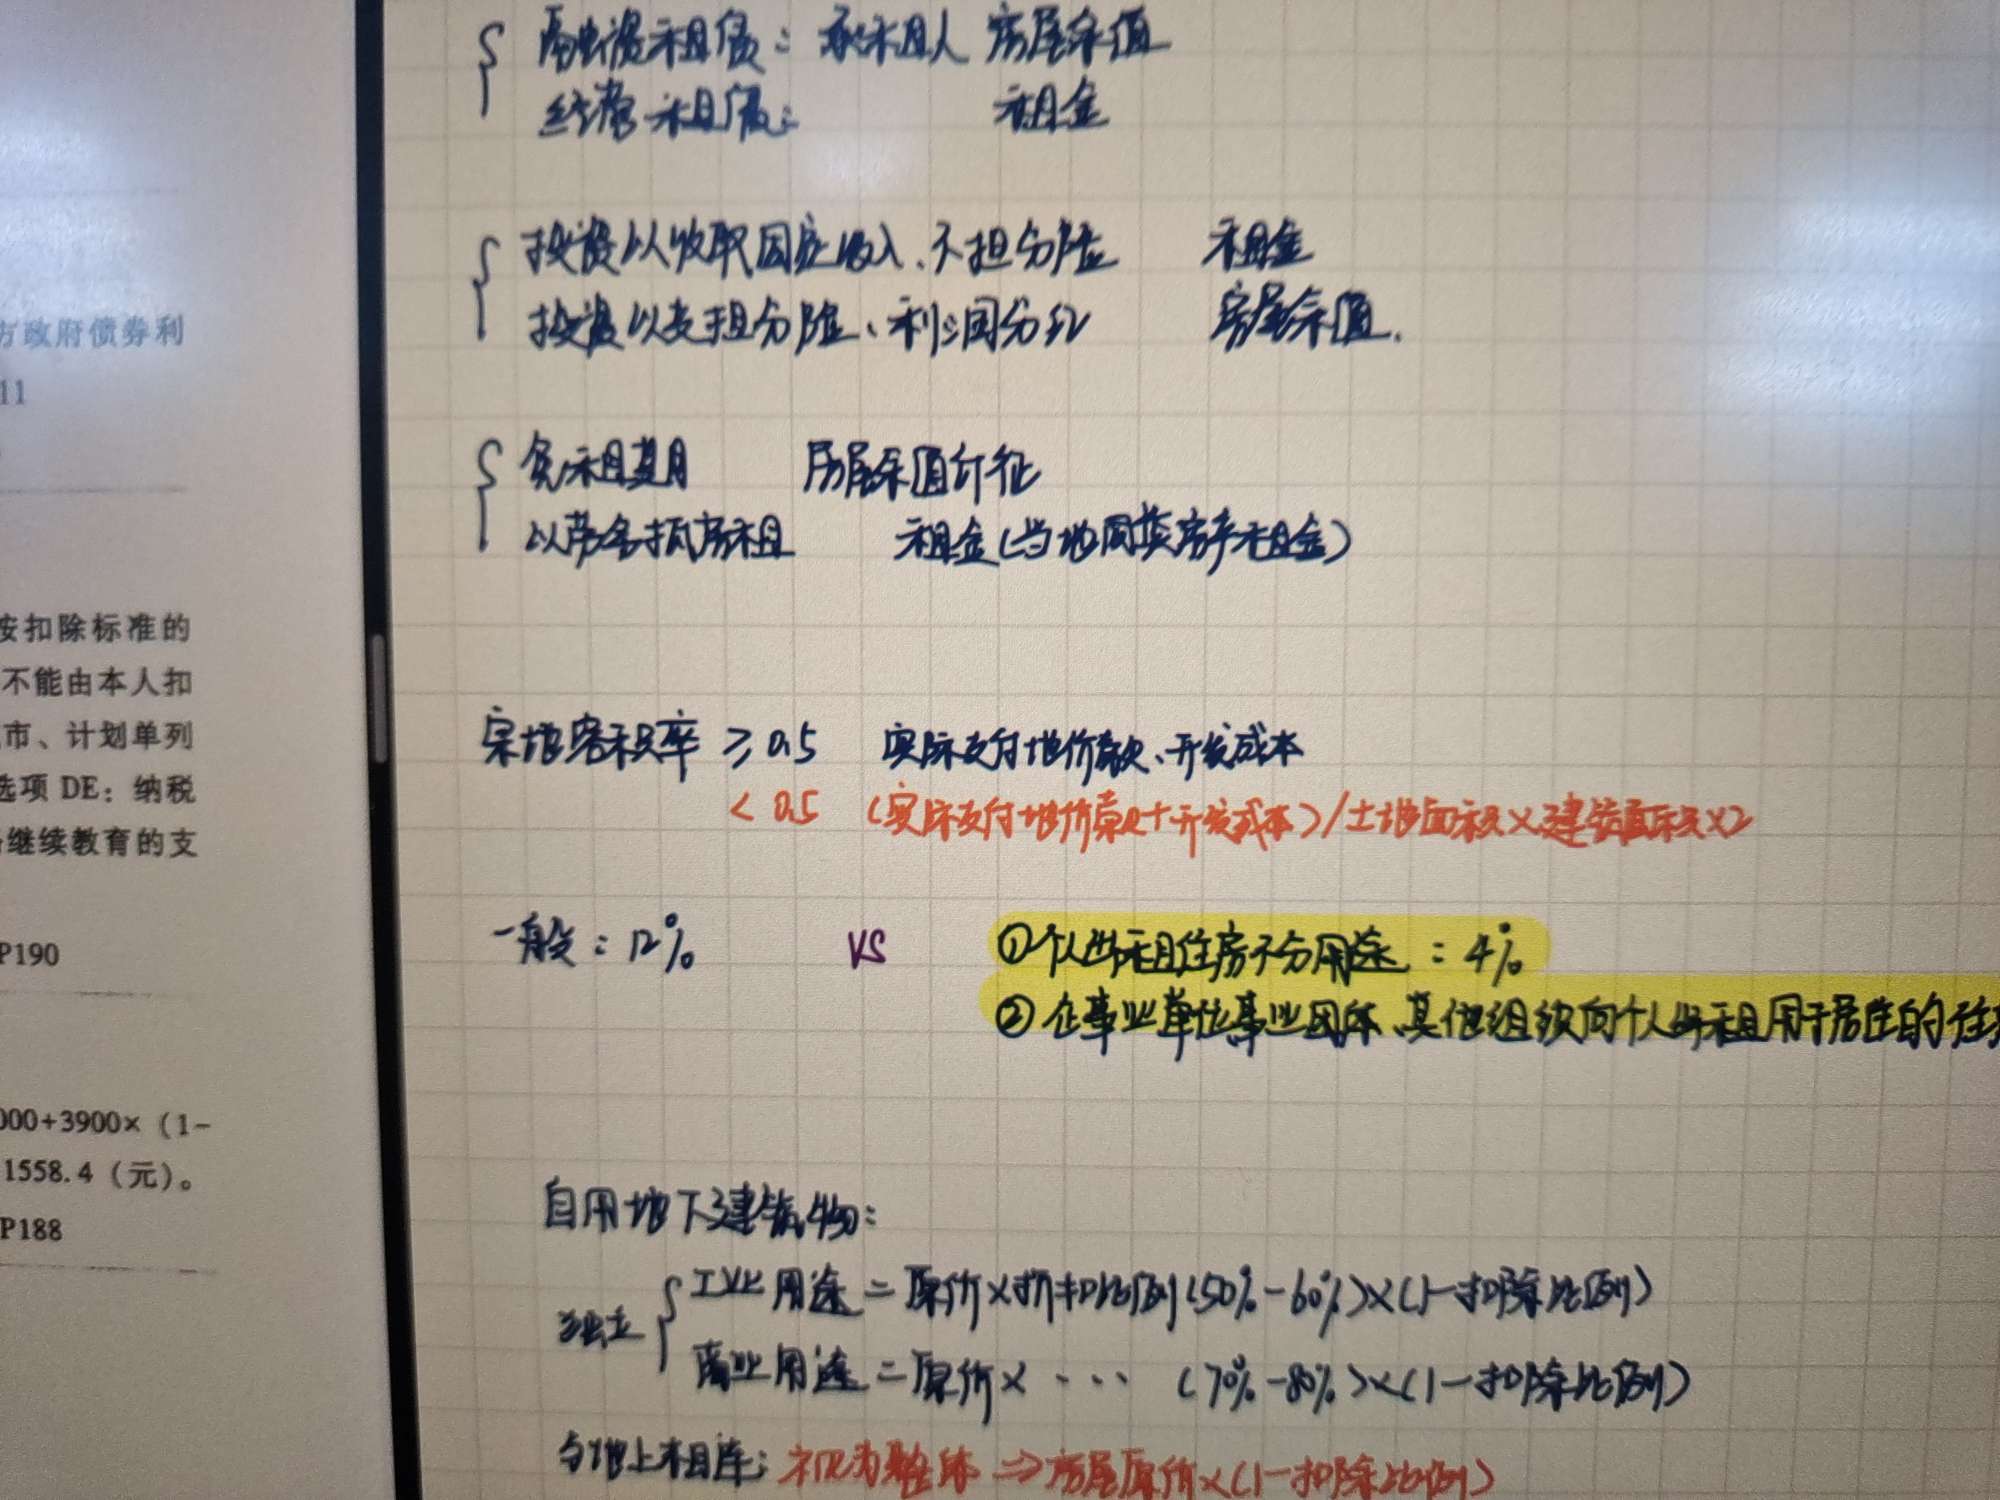 融资租赁：承租人 房屋余值
经营租赁： 租金
投资以收取固定收入、不担分险 租金
投资以支担分险、利润分红 房屋余值.
免租期 房屋余值计征
以劳务抵房租 租金(当地同类房产租金)
宗地容积率 ≥0.5 实际支付地价款、开发成本
<0.5 (实际支付地价款+开发成本)/土地面积×建筑面积×2
一般：12% VS ①个人出租住房不分用途：4%
②企事业单位事业团体、其他组织向个人出租用于居住的住
自用地下建筑物：
独立
工业用途=原价×折扣比例(50%-60%)×(1-扣除比例)
商业用途=原价×···(70%-80%)×(1-扣除比例)
与地上相连：视为整体⇒房屋原价×(1-扣除比例)
方政府债券利
11
按扣除标准的
不能由本人扣
市、计划单列
选项 DE：纳税
继续教育的支
P190
000+3900×（1-
1558.4（元）。
P188